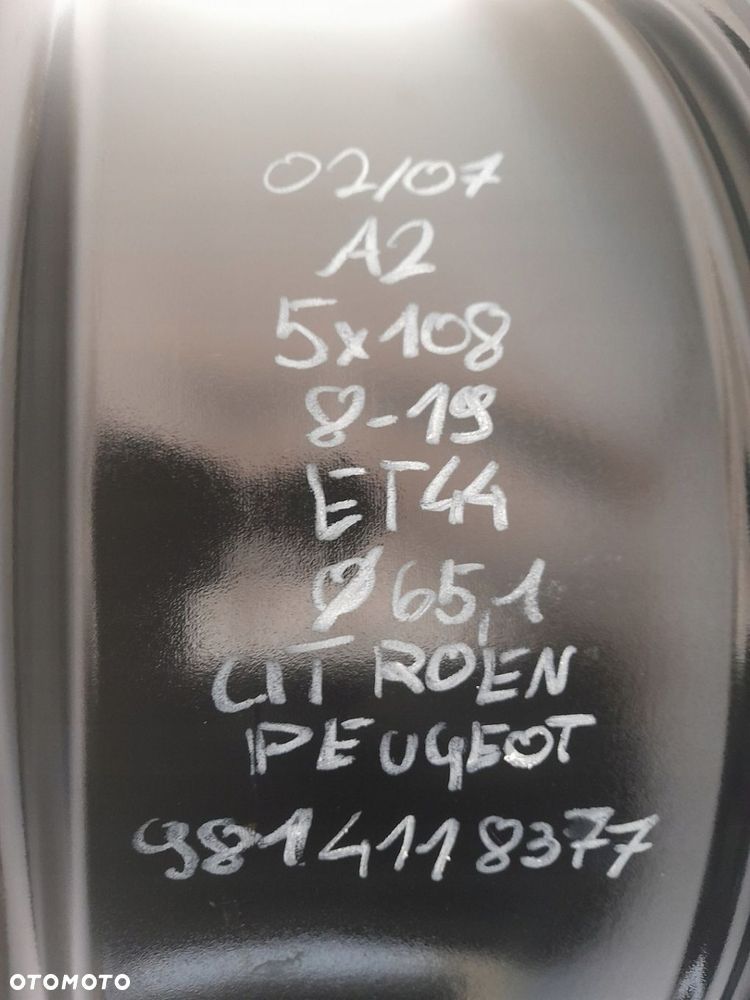 02/07
A2
5x108
8-19
ET44
Ø 65,1
CITROEN
PEUGEOT
9814118377
OTOMOTO